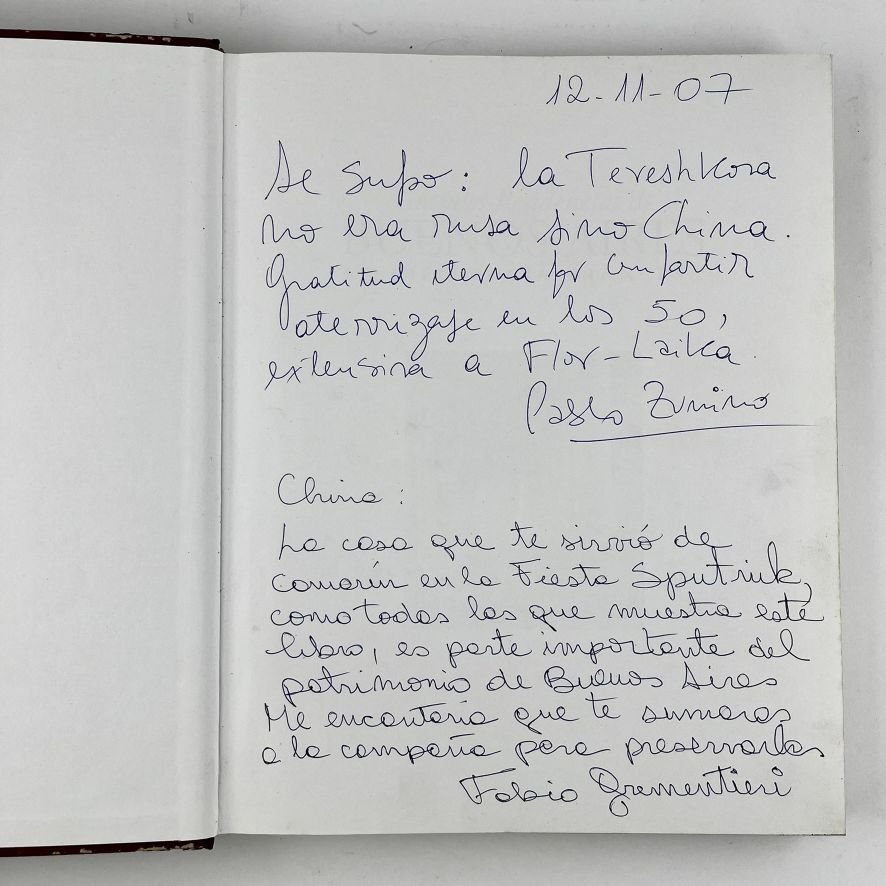 12-11-07
Se supo: la Tereshkova
no era rusa sino China.
Gratitud eterna por compartir
aterrizaje en los 50,
extensiva a Flor-Laika.
Pablo Zunino
China:
La casa que te sirvió de
camarín en la Fiesta Sputnik,
como todas las que muestra este
libro, es parte importante del
patrimonio de Buenos Aires
Me encantaría que te sumaras
a la campaña para preservarlas
Fabio Grementieri